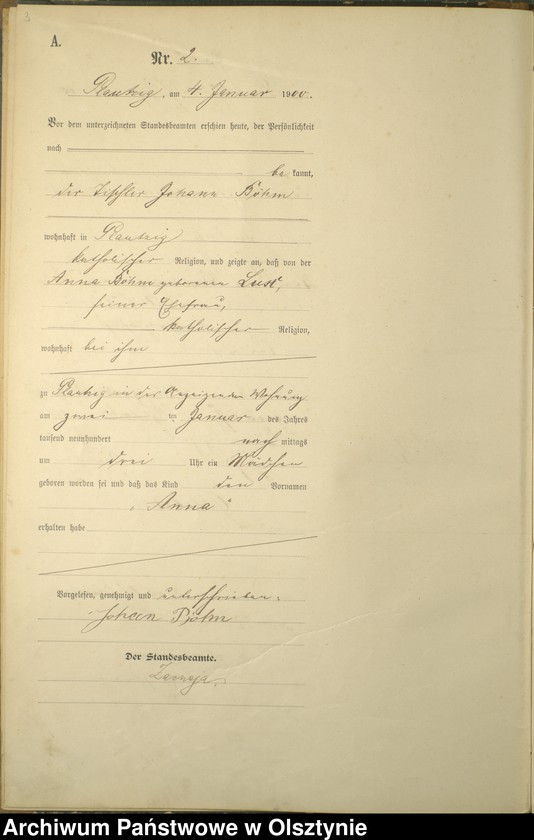 3
A.
Nr. 2.
Plautzig, am 4. Januar 1900.
Vor dem unterzeichneten Standesbeamten erschien heute, der Persönlichkeit
nach
be kannt,
der Tischler Johann Böhm
wohnhaft in Plautzig
katholischer Religion, und zeigte an, daß von der
Anna Böhm geborenen
seiner Ehefrau,
katholischer Religion,
wohnhaft bei ihm
zu Plautzig in der Wohnung
am zwei ten Januar des Jahres
tausend neunhundert nach mittags
um drei Uhr ein Mädchen
geboren worden sei und daß das Kind den Vornamen
„Anna“
erhalten habe
Vorgelesen, genehmigt und unterschrieben:
Johann Böhm
Der Standesbeamte.
Archiwum Państwowe w Olsztynie